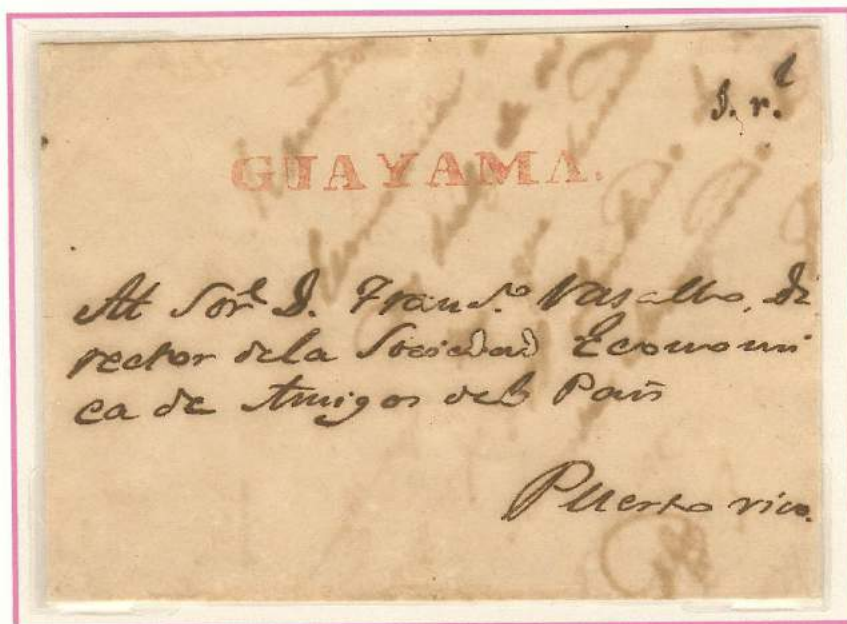 S. r.l
GUAYAMA.
Al Sor. D. Franco. Vasallo, Di
rector dela Sociedad Economi
ca de Amigos del Pais
Puerto rico.